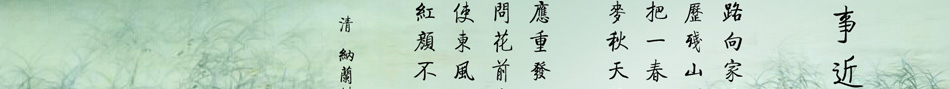 事近
路向家
歷殘山
把一春
麥秋天
應重發
問花前
使東風
紅顏不
清 納蘭